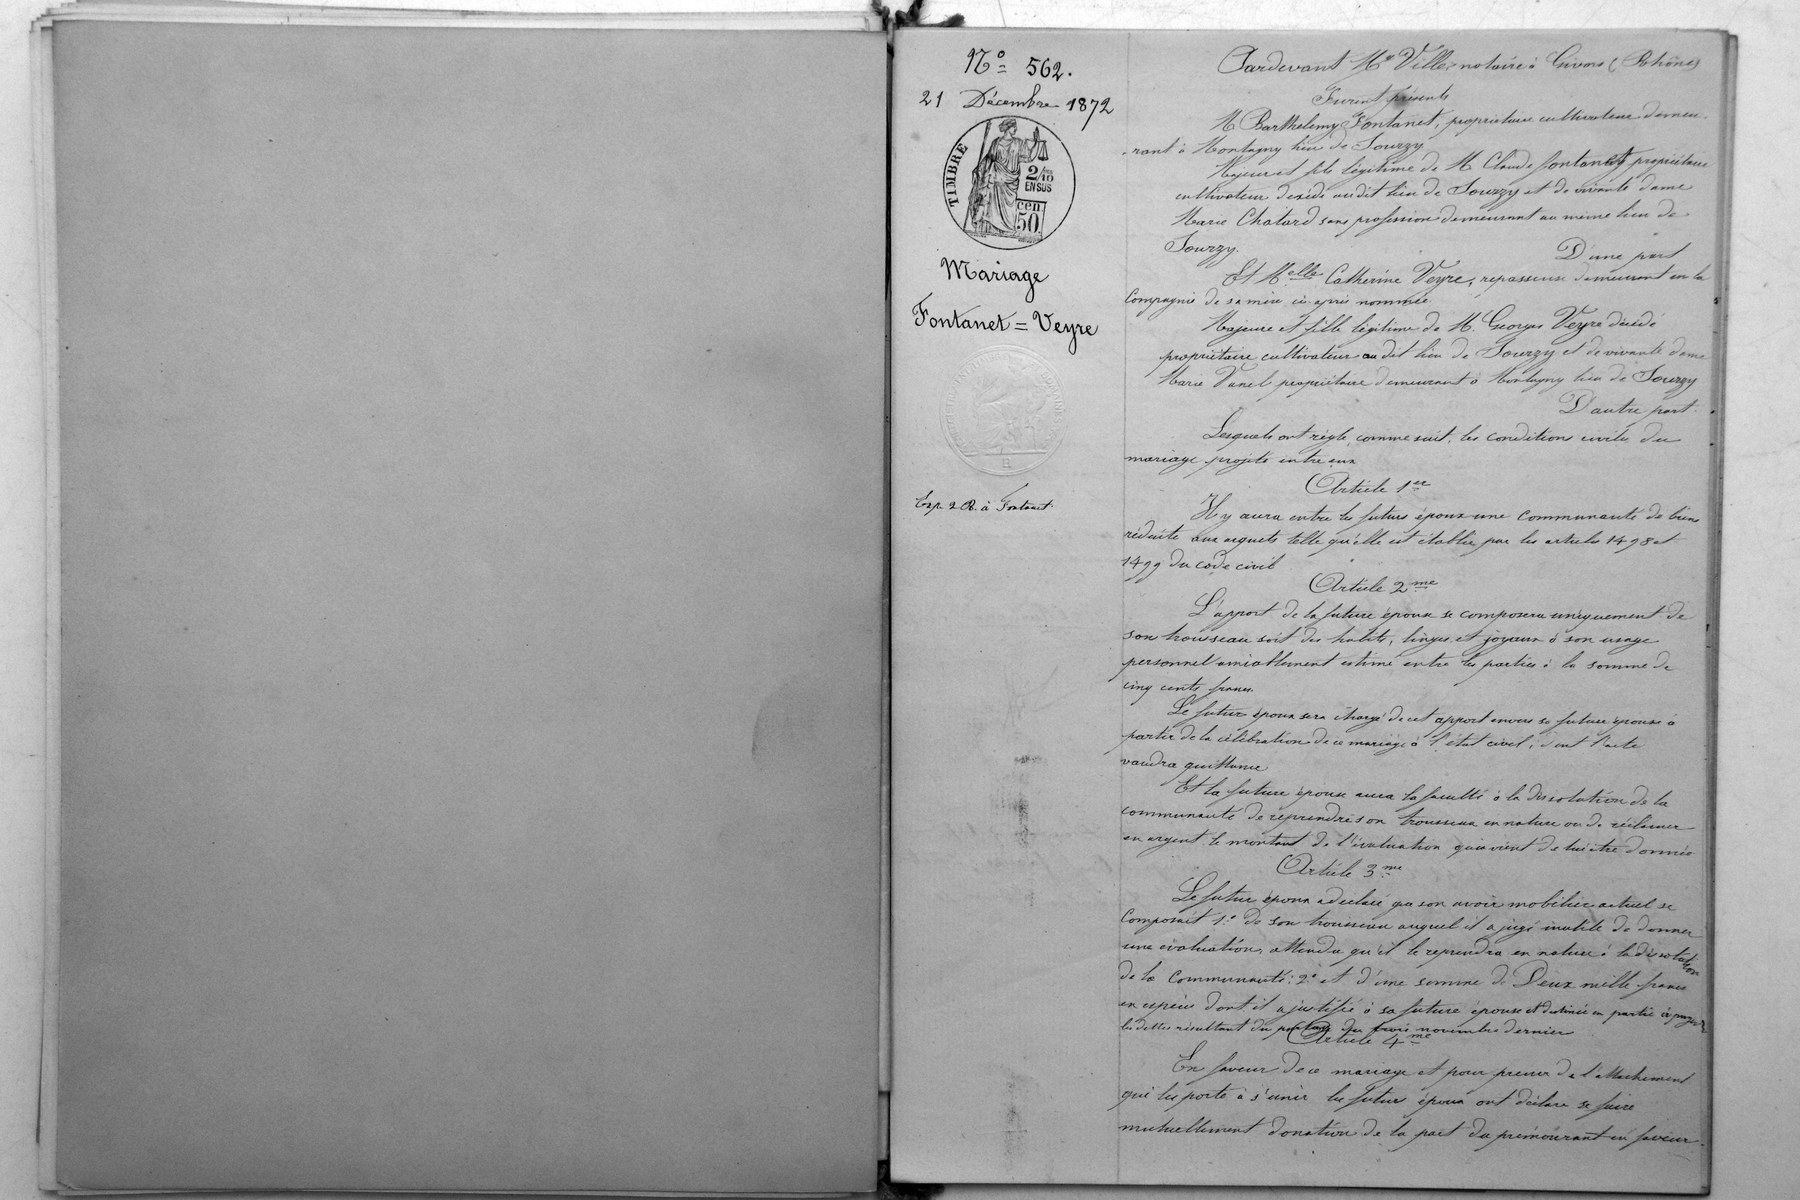 N° 562.
21 Décembre 1872
TIMBRE
2/10
EN SUS
cen
50.
Mariage
Fontanet = Veyre
Exp. 2 R. à Fontanet
Pardevant Me Ville, notaire à Givors (Rhône)
Furent présents
M Barthelemy Fontanet, propriétaire cultivateur demeu-
-rant à Montagny lieu de Sourzy
Majeur et fils légitime de M Claude Fontanet propriétaire
cultivateur décédé audit lieu de Sourzy et de vivante dame
Marie Chatard sans profession demeurant au même lieu de
Sourzy.
D'une part
Et Melle Catherine Veyre, repasseuse demeurant en la
Compagnie de sa mère ci-après nommée
Majeure et fille légitime de M. Georges Veyre décédé
propriétaire cultivateur au dit lieu de Sourzy et de vivante dame
Marie propriétaire demeurant à Montagny lieu de Sourzy
D'autre part.
Lesquels ont réglé comme suit, les conditions civiles du
mariage projeté entre eux
Article 1er
Il y aura entre les futurs époux une communauté de biens
réduite aux acquets telle qu'elle est établie par les articles 1498 et
1499 du code civil
Article 2me
L'apport de la future épouse se composera uniquement de
son trousseau soit des habits, linges et joyaux à son usage
personnel amiablement estimé entre les parties à la somme de
cinq cents francs.
Le futur époux sera chargé de cet apport envers sa future épouse à
partir de la célébration de ce mariage à l'état civil, dont l'acte
vaudra quittance
Et la future épouse aura la faculté à la dissolution de la
communauté de reprendre son trousseau en nature ou de réclamer
en argent le montant de l'évaluation qui vient de lui être donnée
Article 3me
Le futur époux a déclaré que son avoir mobilier actuel se
Composait 1° de son trousseau auquel il a jugé inutile de donner
une évaluation, attendu qu'il le reprendra en nature à la dissolution
de la Communauté; 2° et d'une somme de Deux mille francs
en espèces dont il a justifié à sa future épouse et destinée en partie à payer
les dettes résultant du partage du trois novembre dernier
Article 4me
En faveur de ce mariage et pour preuve de l'attachement
qui les porte à s'unir les futurs époux ont déclaré se faire
mutuellement donation de la part du prémourant en faveur